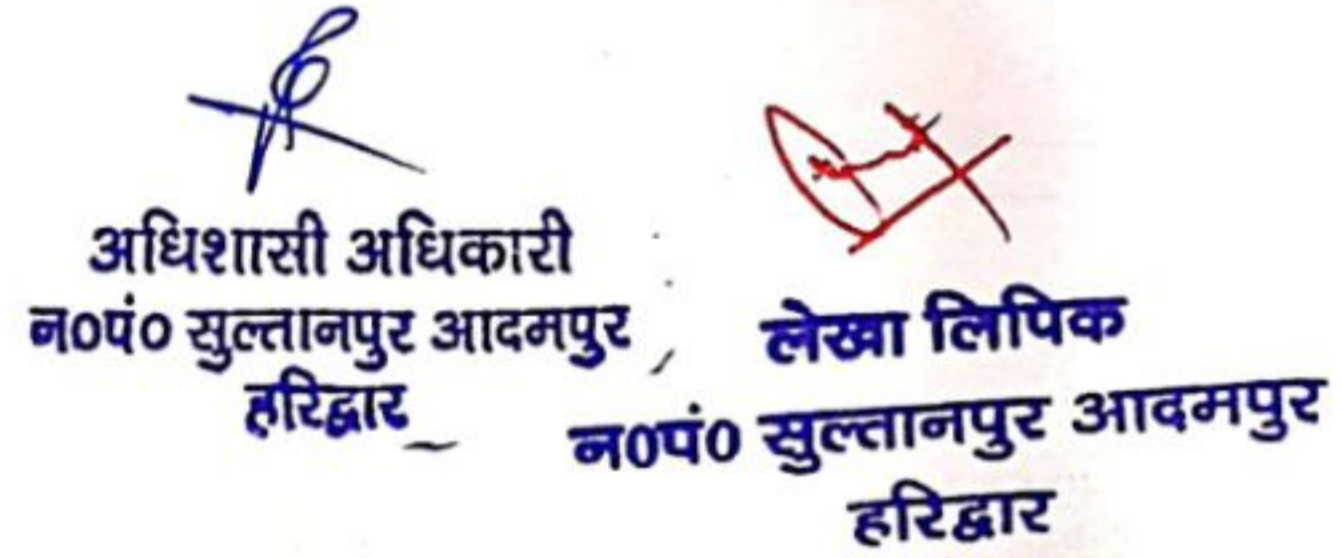 अधिशासी अधिकारी
न०पं० सुल्तानपुर आदमपुर
हरिद्वार
लेखा लिपिक
न०पं० सुल्तानपुर आदमपुर
हरिद्वार